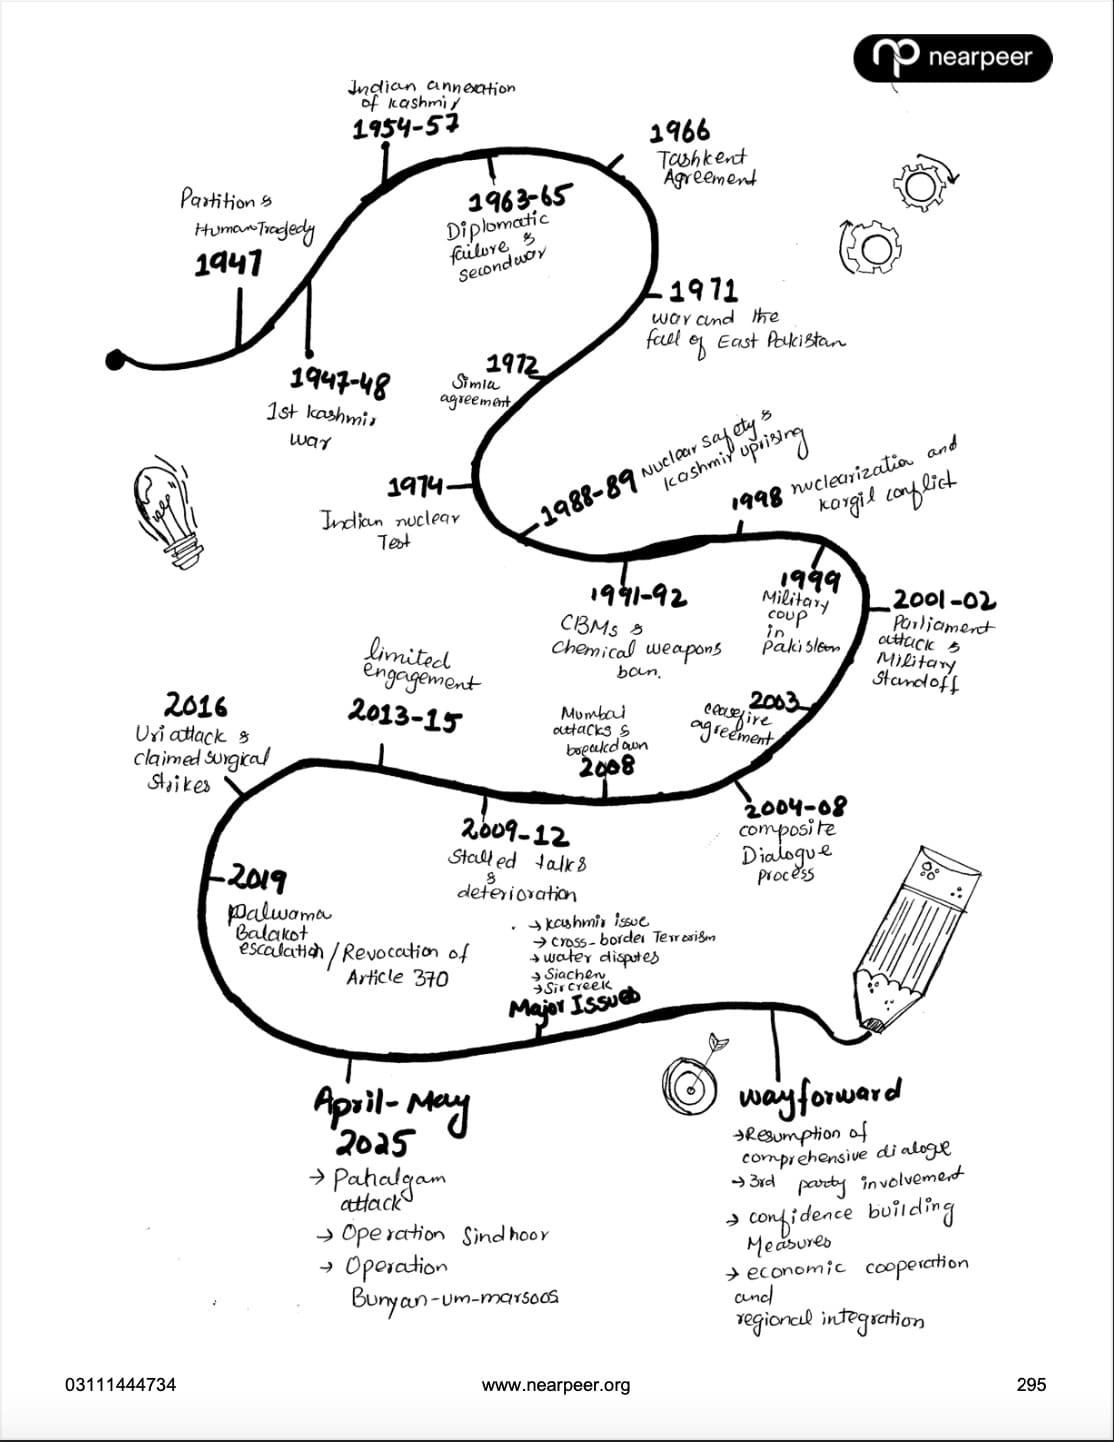 nearpeer
Indian annexation
of Kashmir
1954-57
1966
Tashkent
Agreement
Partition &
Human Tragedy
1947
1963-65
Diplomatic
failure &
second war
1971
war and the
fall of East Pakistan
1947-48
1st Kashmir
war
1972
Simla
agreement
1974
Indian nuclear
Test
1988-89 Nuclear safety &
Kashmir uprising
1998 nuclearization and
kargil conflict
1991-92
CBMs &
Chemical weapons
ban.
1999
Military
coup
in
Pakistan
2001-02
Parliament
attack &
Military
Standoff
limited
engagement
2013-15
2016
Uri attack &
claimed surgical
Strikes
Mumbai
attacks &
breakdown
2008
2003
ceasefire
agreement
2004-08
composite
Dialogue
process
2009-12
Stalled talks
&
deterioration
2019
Pulwama
Balakot
escalation / Revocation of
Article 370
→ Kashmir issue
→ cross-border Terrorism
→ water disputes
→ Siachen
→ Sir creek
Major Issues
April-May
2025
→ Pahalgam
attack
→ Operation Sindhoor
→ Operation
Bunyan-um-marsoos
way forward
→ Resumption of
comprehensive dialogue
→ 3rd party involvement
→ confidence building
Measures
→ economic cooperation
and
regional integration
03111444734
www.nearpeer.org
295